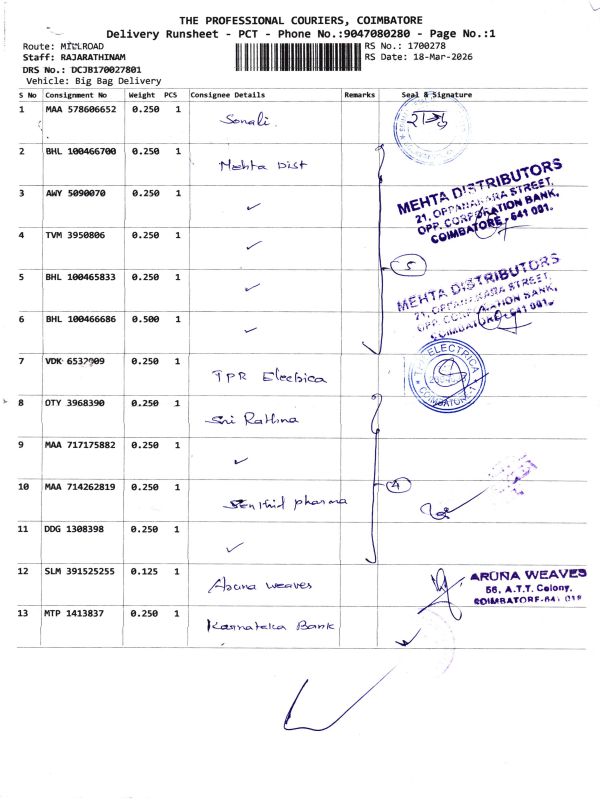 THE PROFESSIONAL COURIERS, COIMBATORE
Delivery Runsheet - PCT - Phone No.:9047080280 - Page No.:1
Route: MILLROAD RS No.: 1700278
Staff: RAJARATHINAM RS Date: 18-Mar-2026
DRS No.: DCJB170027801
Vehicle: Big Bag Delivery
S No Consignment No Weight PCS Consignee Details Remarks Seal & Signature
1 MAA 578606652 0.250 1 Sonali.
2 BHL 100466700 0.250 1 Mehta Dist
MEHTA DISTRIBUTORS
21, OPPANAKARA STREET,
OPP. CORPORATION BANK,
COIMBATORE - 641 001.
3 AWY 5090070 0.250 1 ✓
4 TVM 3950806 0.250 1 ✓
5
5 BHL 100465833 0.250 1 ✓
MEHTA DISTRIBUTORS
21, OPPANAKARA STREET,
OPP. CORPORATION BANK,
COIMBATORE-641 001.
6 BHL 100466686 0.500 1 ✓
7 VDK 6532909 0.250 1 TPR Electrica
ELECTRICA
COIMBATORE
8 OTY 3968390 0.250 1 Sri Rathna
9 MAA 717175882 0.250 1 ✓
10 MAA 714262819 0.250 1 Senthil pharma
4
11 DDG 1308398 0.250 1 ✓
12 SLM 391525255 0.125 1 Aruna weaves
ARUNA WEAVES
56, A.T.T. Colony,
COIMBATORE-641 018
13 MTP 1413837 0.250 1 Karnataka Bank